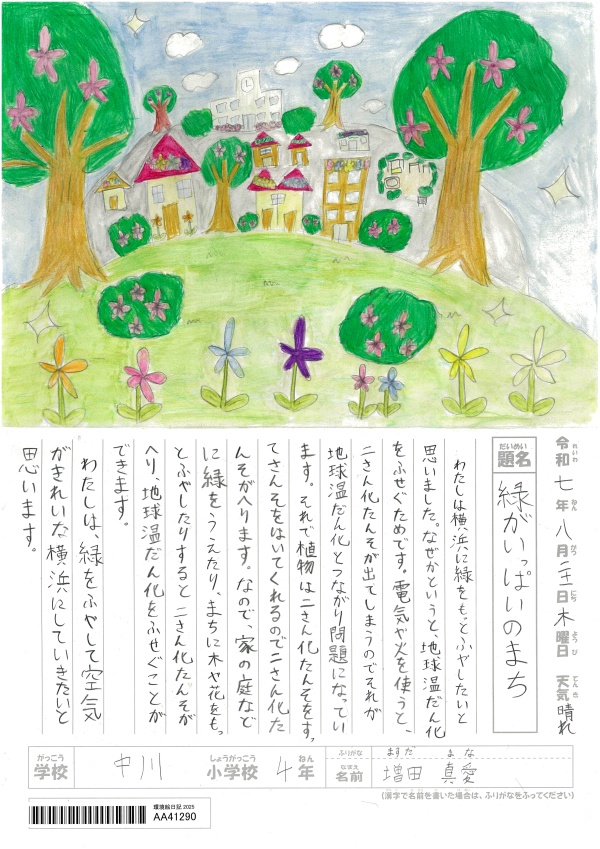 令和七年八月二十一日木曜日 天気晴れ
れいわ ねん がつ にち ようび てんき
だいめい
題名
緑がいっぱいのまち
わたしは横浜に緑をもっとふやしたいと
思いました。なぜかというと、地球温だん化
をふせぐためです。電気や火を使うと、
二さん化たんそが出てしまうのでそれが
地球温だん化とつながり問題になってい
ます。それで植物は二さん化たんそをすっ
てさんそをはいてくれるので二さん化た
んそがへります。なので、家の庭など
に緑をうえたり、まちに木や花をもっ
とふやしたりすると二さん化たんそが
へり、地球温だん化をふせぐことが
できます。
わたしは、緑をふやして空気
がきれいな横浜にしていきたいと
思います。
がっこう しょうがっこう ねん ふりがな ますだ まな
学校 中川 小学校 4年 なまえ 名前 増田 真愛
(漢字で名前を書いた場合は、ふりがなをふってください)
環境絵日記 2025
AA41290